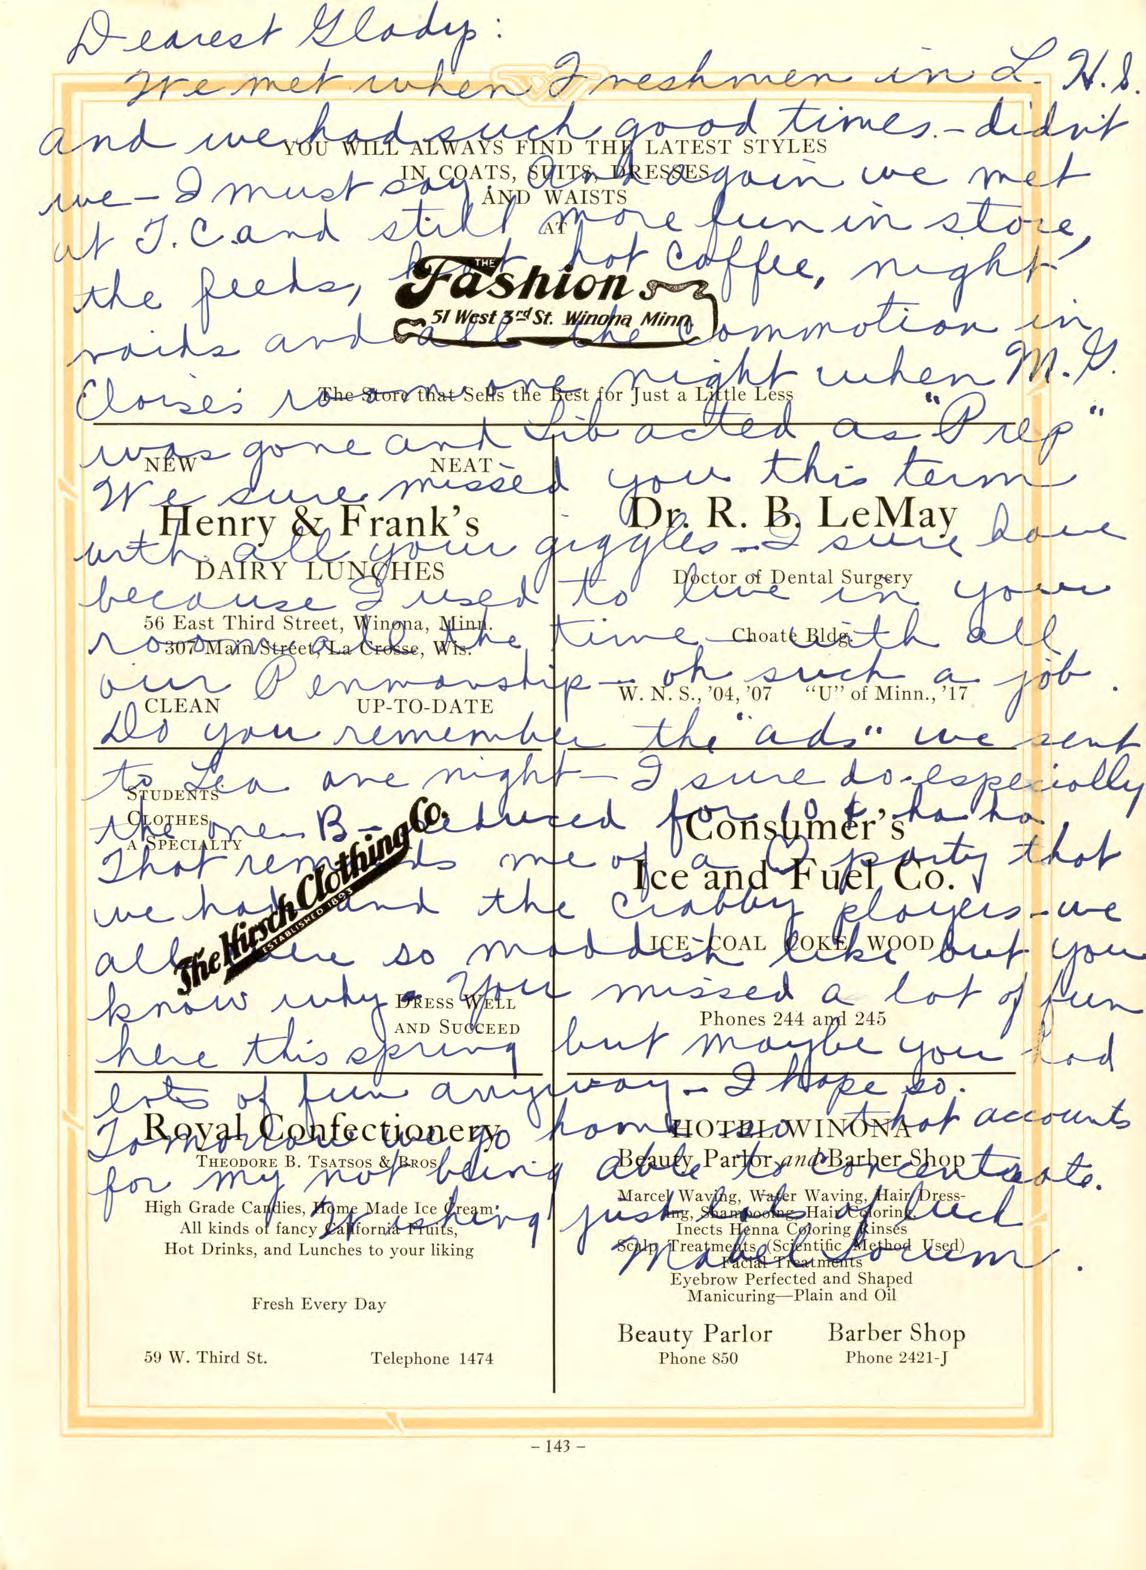 Dearest Gladys:
We met when Freshmen in L. H. S.
and we had such good times. - didn't
we - I must say. And again we met
at T. C. and still more fun in store,
the feeds, hot coffee, night
raids and all the commotion in
Eloise's room one night when M. G.
was gone and Lib acted as "Prep"
We sure missed you this term
with all your giggles - I sure have
because I used to live in your
room all the time - with all
our Penmanship - oh such a job.
Do you remember the "ads" we sent
to Leo one night - I sure do - especially
the one B - reduced for 10¢ ha ha.
That reminds me of a ♡ party that
we had and the crabby players - we
all were so maddish like but you
know why. You missed a lot of fun
here this spring but maybe you had
lots of fun anyway - I hope so.
Tomorrow we go home so that accounts
for my not being able to concentrate.
Wishing just lots of luck
Mabel Sorum.
YOU WILL ALWAYS FIND THE LATEST STYLES
IN COATS, SUITS, DRESSES
AND WAISTS
AT
THE
Fashion
51 West 3rd St. Winona Minn.
The Store that Sells the Best for Just a Little Less
NEW NEAT
Henry & Frank's
DAIRY LUNCHES
56 East Third Street, Winona, Minn.
307 Main Street, La Crosse, Wis.
CLEAN UP-TO-DATE
Dr. R. B. LeMay
Doctor of Dental Surgery
Choate Bldg.
W. N. S., '04, '07 "U" of Minn., '17
STUDENTS'
CLOTHES
A SPECIALTY
The Hirsch Clothing Co.
ESTABLISHED 1893
DRESS WELL
AND SUCCEED
Consumer's
Ice and Fuel Co.
ICE COAL COKE WOOD
Phones 244 and 245
Royal Confectionery
THEODORE B. TSATSOS & BROS.
High Grade Candies, Home Made Ice Cream
All kinds of fancy California Fruits,
Hot Drinks, and Lunches to your liking
Fresh Every Day
59 W. Third St. Telephone 1474
HOTEL WINONA
Beauty Parlor and Barber Shop
Marcel Waving, Water Waving, Hair Dress-
ing, Shampooing, Hair Coloring,
Inects Henna Coloring Rinses
Scalp Treatments (Scientific Method Used)
Facial Treatments
Eyebrow Perfected and Shaped
Manicuring—Plain and Oil
Beauty Parlor Barber Shop
Phone 850 Phone 2421-J
- 143 -